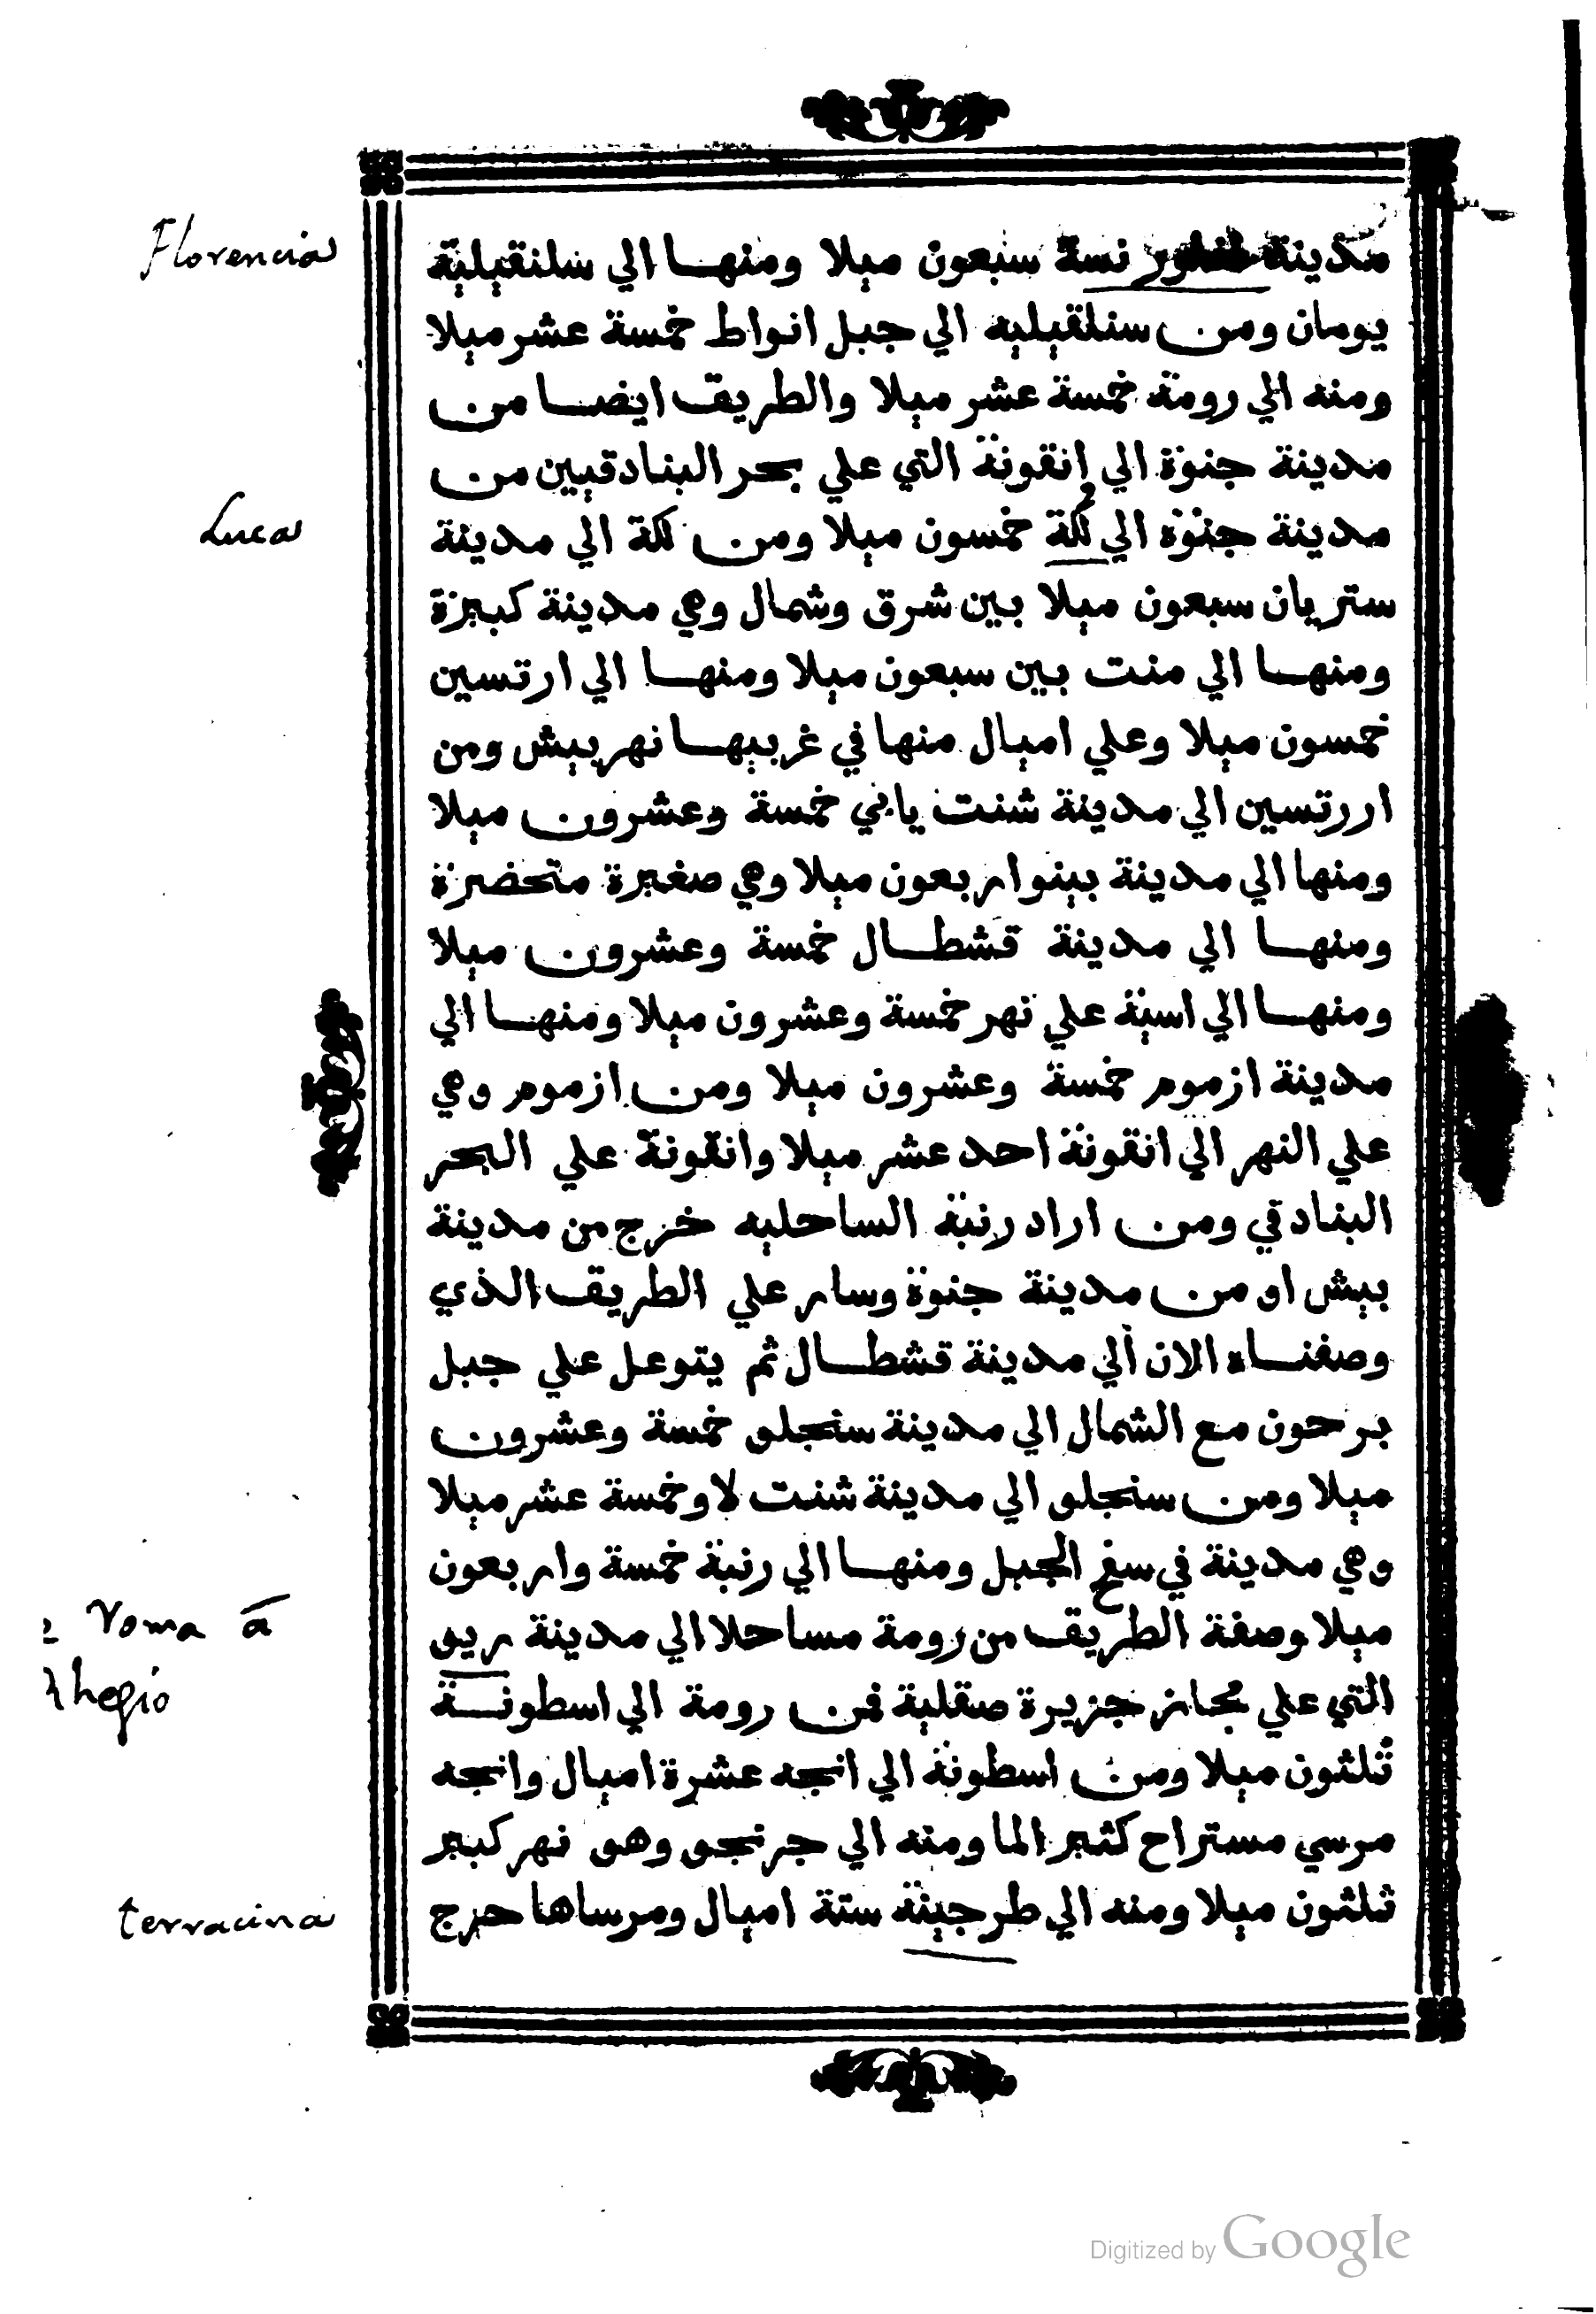 Florencia
مدينة فلورنسة سبعون ميلا ومنها الي سلنقيلية
يومان ومن سنلقيليه الي جبل انواط خمسة عشر ميلا
ومنه الي رومة خمسة عشر ميلا والطريق ايضا من
مدينة جنوة الي انقونة التي علي بحر البنادقيين من
Luca
مدينة جنوة الي لكة خمسون ميلا ومن لكة الي مدينة
ستريان سبعون ميلا بين شرق وشمال وهي مدينة كبيرة
ومنها الي منت بين سبعون ميلا ومنها الي ارتسين
خمسون ميلا وعلي اميال منها في غربيها نهر بيش ومن
اررتسين الي مدينة شنت يابي خمسة وعشرون ميلا
ومنها الي مدينة بينو اربعون ميلا وهي صغيرة متحضرة
ومنها الي مدينة قشطال خمسة وعشرون ميلا
ومنها الي اسية علي نهر خمسة وعشرون ميلا ومنها الي
مدينة ازموم خمسة وعشرون ميلا ومن ازموم وهي
علي النهر الي انقونة احد عشر ميلا وانقونة علي البحر
البنادقي ومن اراد رنبة الساحليه خرج من مدينة
بيش او من مدينة جنوة وسار علي الطريق الذي
وصفناه الان الي مدينة قشطال ثم يتوعل علي جبل
برحون مع الشمال الي مدينة سنجلو خمسة وعشرون
ميلا ومن سنجلو الي مدينة شنت لاو خمسة عشر ميلا
وهي مدينة في سفح الجبل ومنها الي رنبة خمسة واربعون
roma a
ميلا وصفة الطريق من رومة مساحلا الي مدينة ريو
Rhegio
التي علي مجاز جزيرة صقلية فمن رومة الي اسطونة
ثلثون ميلا ومن اسطونة الي انجه عشرة اميال وانجه
مرسي مستراح كثير الما ومنه الي جرنجو وهو نهر كبير
terracina
ثلثون ميلا ومنه الي طرجينة ستة اميال ومرساها حرج
Digitized by Google